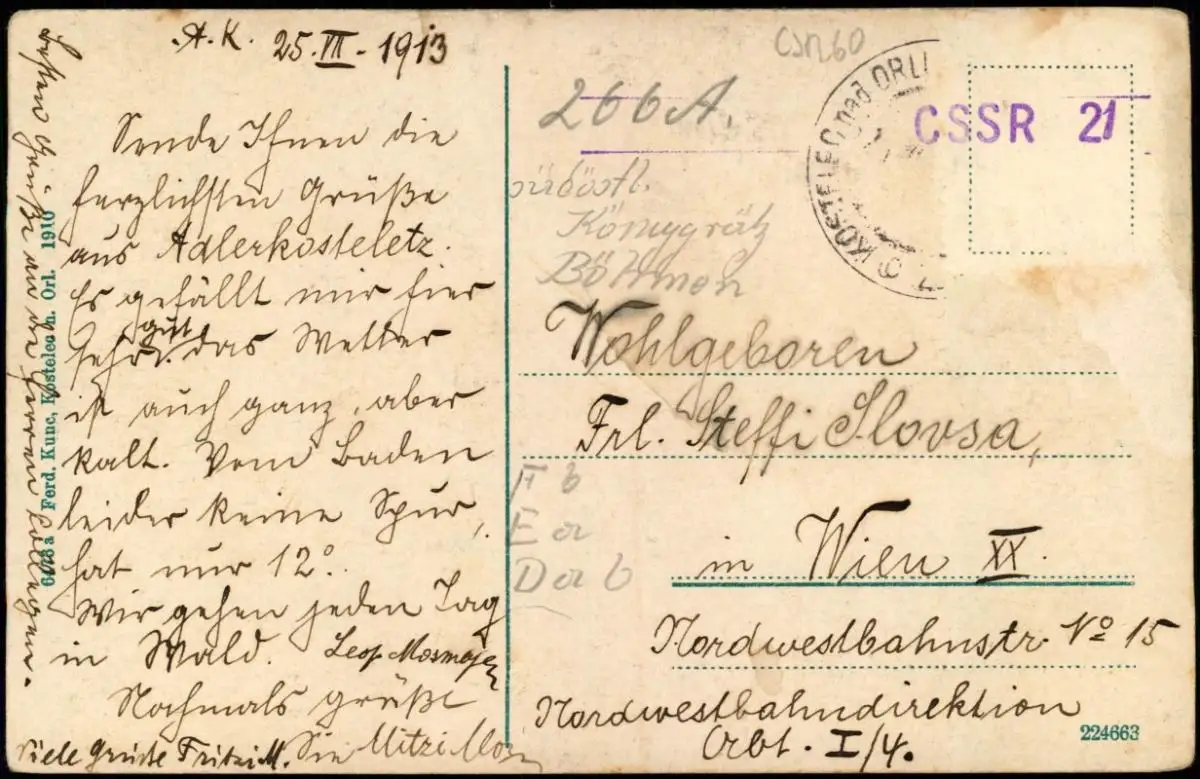 A. K. 25. VII. - 1913
Sende Ihnen die
herzlichsten Grüße
aus Adlerkosteletz.
Es gefällt mir hier
sehr gut. das Wetter
ist auch ganz, aber
kalt. Vom Baden
leider keine Spur,
hat nur 12°.
Wir gehen jeden Tag
in Wald. Leop.
Nochmals grüßt
Sie Mitzi
viele Grüße Fritzi M.
besten Grüße an die Herren Kollegen.
Ferd. Kunc, Kostelec n. Orl. 1910
CSR 60
266 A.
KOSTELEC nad ORLI
CSSR 21
südöstl.
Königgrätz
Böhmen
Wohlgeboren
Frl. Steffi Slovsa,
F b
E a
D a b
in Wien XX.
Nordwestbahnstr. No 15
Nordwestbahndirektion
Abt. I/4.
224663